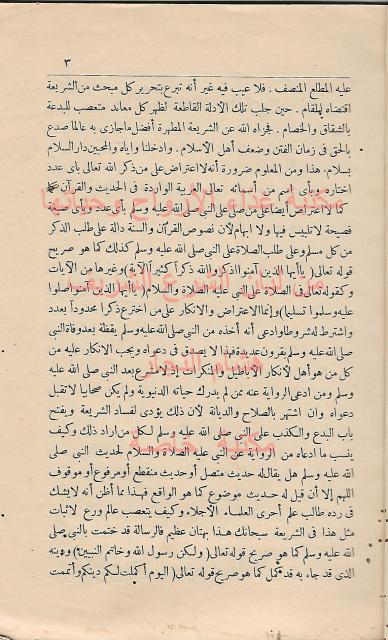 ٣
عليه المطلع المنصف . فلا عيب فيه غير أنه تبرع بتحرير كل مبحث من الشريعة
اقتضاه المقام . حين جلب تلك الادلة القاطعة لظهر كل معاند متعصب للبدعة
بالشقاق والخصام . فجزاه الله عن الشريعة المطهرة أفضل ماجازى به عالما صدع
بالحق فى زمان الفتن وضعف أهل الاسلام . وادخلنا واياه والمحبين دار السلام
بسلام. هذا ومن المعلوم ضرورة أنه لا اعتراض على من ذكر الله تعالى بأى عدد
اختاره وبأى اسم من أسمائه تعالى العربية الواردة فى الحديث والقرآن
كما لا اعتراض أيضا على من صلى على النبى صلى الله عليه وسلم بأى عدد وبأى صيغة
فصيحة لا تلبيس فيها ولا ابهام لأن نصوص القرآن والسنة دالة على طلب الذكر
من كل مسلم وعلى طلب الصلاة على النبى صلى الله عليه وسلم كذلك كما هو صريح
قوله تعالى (ياأيها الذين آمنوا اذكروا الله ذكرا كثيرا الآية) وغيرها من الآيات
وكقوله تعالى فى الصلاة على النبى عليه الصلاة والسلام (ياأيها الذين آمنوا صلوا
عليه وسلموا تسليما) وإنما الاعتراض والانكار على من اخترع ذكرا محدودا بعدد
واشترط له شروطا وادعى أنه أخذه من النبى صلى الله عليه وسلم يقظة بعد وفاة النبى
صلى الله عليه وسلم بقرون عديدة فهذا لا يصدق فى دعواه ويجب الانكار عليه من
كل من هو أهل لأنكار الأباطيل والمنكرات إذ لا مشرع بعد النبى صلى الله عليه
وسلم ومن ادعى الرواية عنه ممن لم يدرك حياته الدنيوية ولم يكن صحابيا لا تقبل
دعواه وان اشتهر بالصلاح والديانة لأن ذلك يؤدى لفساد الشريعة ويفتح
باب البدع والكذب على النبى صلى الله عليه وسلم لكل من اراد ذلك وكيف
ينسب ما ادعاه من الرواية عن النبى عليه الصلاة والسلام لحديث النبى صلى
الله عليه وسلم هل يقال له حديث متصل أو حديث منقطع أو مرفوع أو موقوف
اللهم إلا أن قيل له حديث موضوع كما هو الواقع فهذا مما أظن أنه لا يشك
فى رده طالب علم أحرى العلماء الأجلاء وكيف يتعصب عالم ورع لاثبات
مثل هذا فى الشريعة سبحانك هذا بهتان عظيم فالرسالة قد ختمت بالنبى صلى
الله عليه وسلم كما هو صريح قوله تعالى (ولكن رسول الله وخاتم النبيين) ودينه
الذى قد جاء به قد كمل كما هو صريح قوله تعالى (اليوم أكملت لكم دينكم وأتممت
مكتبة خاصة